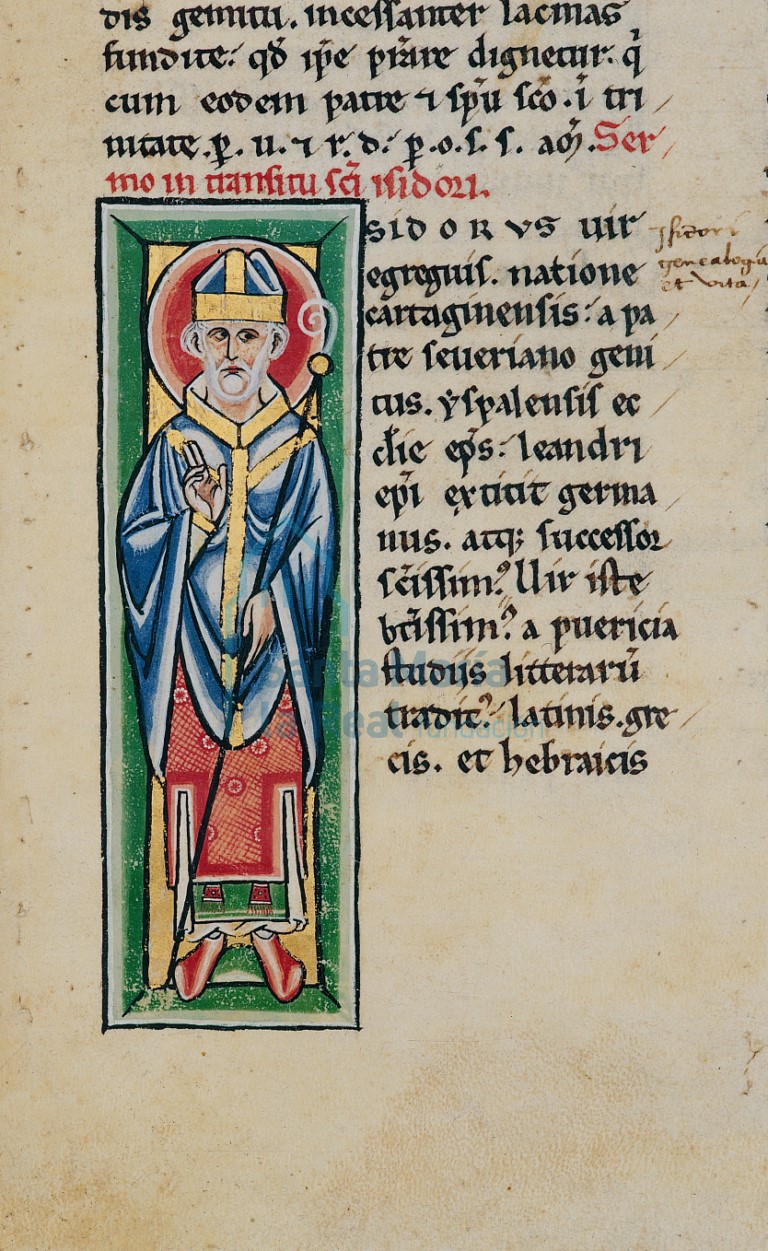 dis gemitu. incessanter lacrimas
fundite: qđ ip̄e p̄rare dignetur. q̇
cum eodem patre ⁊ sp̄u sc̄o. ī tri
nitate. p̱. u. ⁊ r. d: p̱. o. s. s. am̄. Ser
mo in transitu sc̄i isidori.
SIDORVS uir
egregius. natione
cartaginensis: a pa
tre seueriano geni
tus. yspalensis ec
cl̄ie ep̄s: leandri
ep̄i extitit germa
nus. atq; successor
sc̄issim᾿ Uir iste
bt̄issim᾿ a puericia
studijs litterarū
tradit᾿ latinis. gre
cis. et hebraicis
Isidori
genealogia
et vita
Santa María
la Real fundación